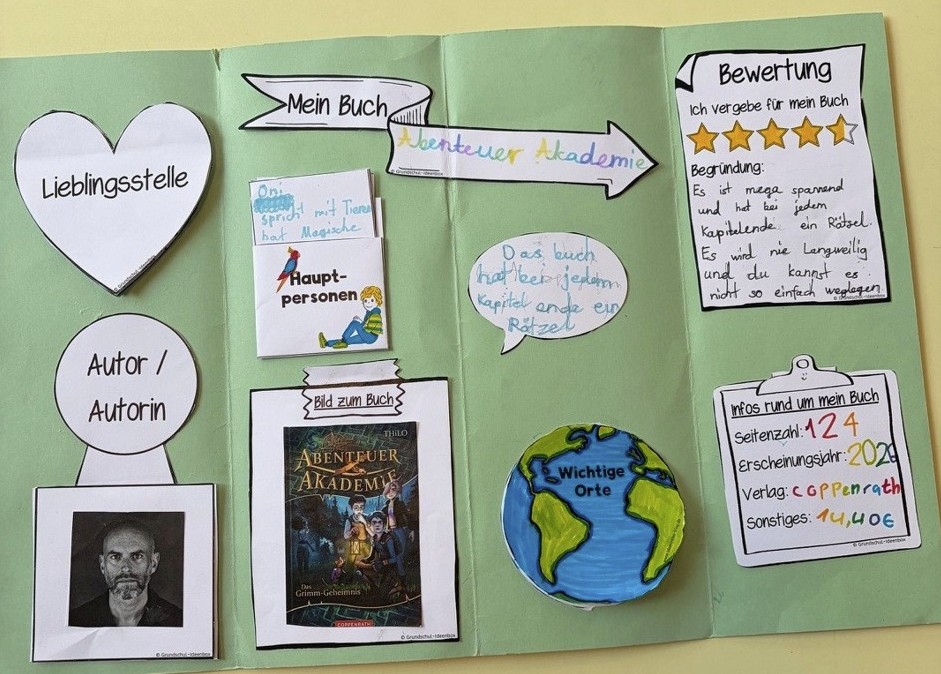 Lieblingsstelle
© Grundschul-Ideenbox
Autor /
Autorin
© Grundschul-Ideenbox
Mein Buch
Abenteuer Akademie
© Grundschul-Ideenbox
Oni
spricht mit Tieren
hat Magische
Haupt-
personen
Bild zum Buch
THiLO
ABENTEUER
AKADEMIE
Das
Grimm-Geheimnis
COPPENRATH
© Grundschul-Ideenbox
Das buch
hat bei jedem
Kapitel ende ein
Rätzel
Wichtige
Orte
Bewertung
Ich vergebe für mein Buch
Begründung:
Es ist mega spannend
und hat bei jedem
Kapitelende ein Rätsel.
Es wird nie Langweilig
und du kannst es
nicht so einfach weglegen.
© Grundschul-Ideenbox
Infos rund um mein Buch
Seitenzahl: 124
Erscheinungsjahr: 2020
Verlag: coppenrath
Sonstiges: 14,40€
© Grundschul-Ideenbox